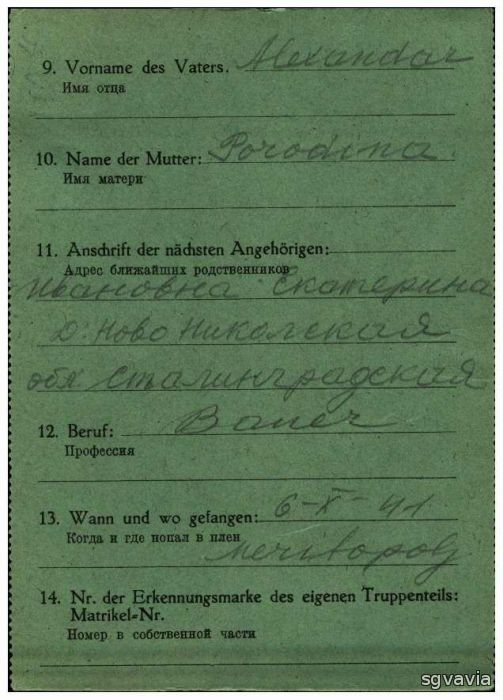 9. Vorname des Vaters. Alexandar
Имя отца
10. Name der Mutter: Porodina
Имя матери
11. Anschrift der nächsten Angehörigen:
Адрес ближайших родственников
Ивановна Екатерина
д. Ново Николская
обл Сталинградская
12. Beruf: Bauer
Профессия
13. Wann und wo gefangen: 6-X-41
Когда и где попал в плен
Meritopolj
14. Nr. der Erkennungsmarke des eigenen Truppenteils:
Matrikel=Nr.
Номер в собственной части
sgvavia